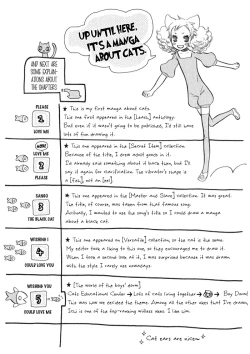 UP UNTIL HERE,
IT'S A MANGA
ABOUT CATS.
AND NEXT ARE
SOME EXPLAN-
ATIONS ABOUT
THE CHAPTERS
PLEASE
LOVE ME
★ This is my first manga about cats.
This one first appeared in the [ ] anthology.
But even if it wasn't going to be published, I'd still have
lots of fun drawing it.
MORE
LOVE ME
PLEASE
★ This one appeared in the [Secret Item] collection.
Because of the title, I drew adult goods in it.
I'd already said something about it back then, but I'll
say it again for clarification. The vibrator's shape is
a [fish], not an [ ].
THE BLACK CAT
★ This one appeared in the [Master and Slave] collection. It was great.
The title, of course, was taken from that famous song.
Actually, I wanted to use the song's title so I could draw a manga
about a black cat.
WISHING I
COULD LOVE YOU
★ This one appeared in [ ] collection, so the cat is the same.
My editor took a liking to this one, so they encouraged me to draw it.
When I took a second look at it, I was surprised because it was drawn
with the style I rarely use nowadays.
WISHING YOU
COULD LOVE ME
★ [The world of the boys' dorm]
Cats Educational Center → Lots of cats living together → → Boy Dorm!
This was how we decided the theme. Among all the other ukes that I've drawn,
is one of the top-ranking useless ukes. I like him.
Cat ears are